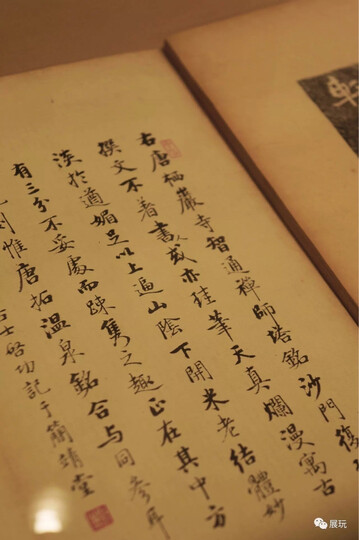 右唐栖巖寺智通禪師塔銘沙門復
撰文不着書或亦珪筆天真爛漫寓古
淡於遒媚足以上逼山陰下開米老結體妙
有三分不妥處而踈雋之趣正在其中方
刻惟唐拓溫泉銘合与同參耳
士啓功記于簡靖堂
展玩